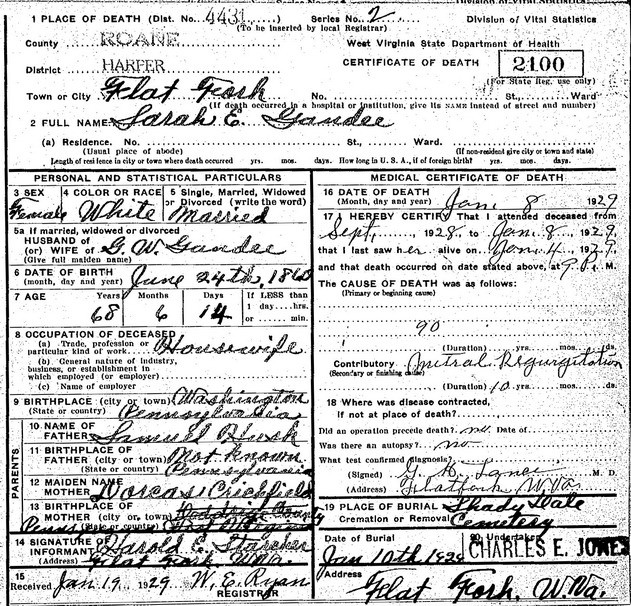 1 PLACE OF DEATH (Dist. No. 4431 Series No. 2 Division of Vital Statistics
(To be inserted by local Registrar)
County ROANE West Virginia State Department of Health
District HARPER CERTIFICATE OF DEATH 2100
(For State Reg. use only)
Town or City Flat Fork No. St., Ward
(If death occurred in a hospital or institution, give its NAME instead of street and number)
2 FULL NAME Sarah E. Gandee
(a) Residence. No. St., Ward.
(Usual place of abode) (If non-resident give city or town and state)
Length of residence in city or town where death occurred yrs. mos. days. How long in U. S. A., if of foreign birth? yrs. mos. days.
PERSONAL AND STATISTICAL PARTICULARS
3 SEX 4 COLOR OR RACE 5 Single, Married, Widowed
or Divorced (write the word)
Female White Married
5a If married, widowed or divorced
HUSBAND OF
(or) WIFE OF G. W. Gandee
(Give full maiden name)
6 DATE OF BIRTH June 24th, 1860
(month, day and year)
7 AGE Years Months Days If LESS than
1 day....hrs.
or ........ min.
68 6 14
8 OCCUPATION OF DECEASED
(a) Trade, profession or
particular kind of work Housewife
(b) General nature of industry,
business, or establishment in
which employed (or employer)
(c) Name of employer
9 BIRTHPLACE (city or town) Washington
(State or country) Pennsylvania
PARENTS
10 NAME OF
FATHER Samuel
11 BIRTHPLACE OF
FATHER (city or town) Not known
(State or country) Pennsylvania
12 MAIDEN NAME
MOTHER Dorcas Crichfield
13 BIRTHPLACE OF
MOTHER (city or town)
(State or country)
14 SIGNATURE OF
INFORMANT Harold E. Starcher
(Address) Flat Fork W.Va.
15
Received Jan 19 1929 W. E. Ryan
REGISTRAR
MEDICAL CERTIFICATE OF DEATH
16 DATE OF DEATH
(Month, day and year) Jan. 8 1929
17 I HEREBY CERTIFY That I attended deceased from
Sept, 1928 to Jan. 8, 1929,
that I last saw her alive on Jan. 4, 1929,
and that death occurred on date stated above, at 9 P. M.
The CAUSE OF DEATH was as follows:
(Primary or beginning cause)
90
(Duration) yrs. mos. ds.
Contributory Mitral Regurgitation
(Secondary or finishing cause)
(Duration) 10 yrs. mos. ds.
18 Where was disease contracted,
If not at place of death?
Did an operation precede death? no. Date of
Was there an autopsy? no
What test confirmed diagnosis?
(Signed) M. D.
(Address) Flatfork W.Va.
19 PLACE OF BURIAL Shady Dale
Cremation or Removal Cemetery
Date of Burial 20 Undertaker
Jan 10th 1929 CHARLES E. JONES
Address
Flat Fork, W.Va.